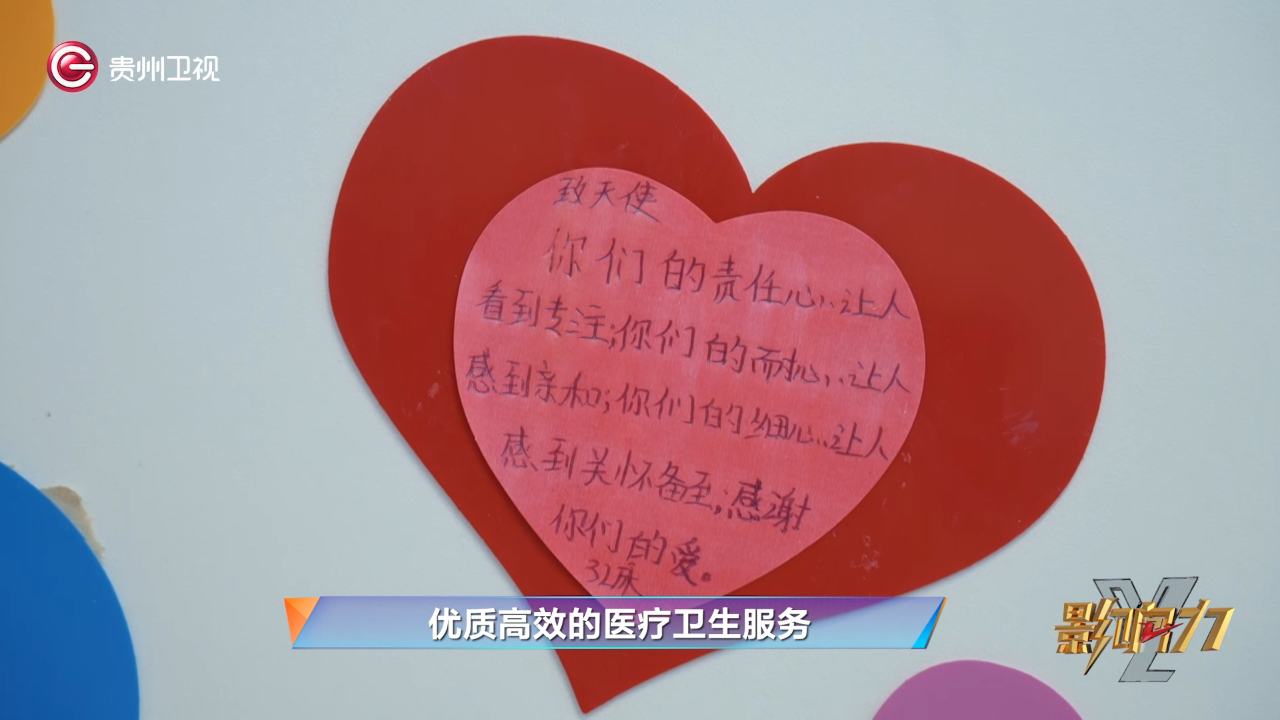 贵州卫视
致天使
你们的责任心,让人
看到专注;你们的耐心,让人
感到亲和;你们的细心,让人
感到关怀备至;感谢
你们的爱。
32床
优质高效的医疗卫生服务
影响力